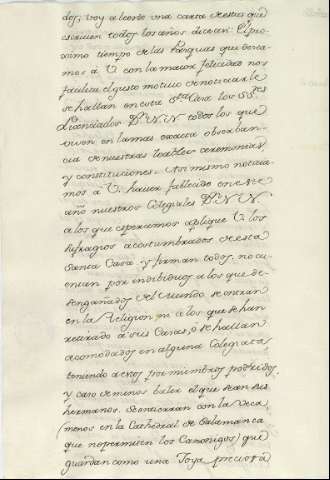 dos, voy a leerte una carta de estas que
escriven todos los años dicen asi: El pro-
ximo tiempo de las Pasquas que desea-
mos a V. con la maior felicidad nos
facilita el gusto motivo de noticiar le
se hallan en esta Sta Casa los SSres
Licenciados Dn N N todos los que
viven en la mas exacta observan-
cia de nuestras loables ceremonias
y constituciones. Asi mismo noticia-
mos a V. haver fallecido en este
año nuestros Colegiales Dn N N.
a los que esperamos aplique V. los
sufragios acostumbrados de esta
Santa Casa. y firman todos. no cu-
entan por individuos a los que de-
sengañados del Mundo se entran
en la Religion, ni a los que se han
retirado a sus Casas, o se hallan
acomodados en alguna Colegiata
teniendo a estos por miembros podridos,
y caso de menos valer el que sean sus
hermanos. Se entierran con la Veca,
(menos en la Cathedral de Salamanca
que no permiten los Canonigos) que
guardan como una Joya preciosa